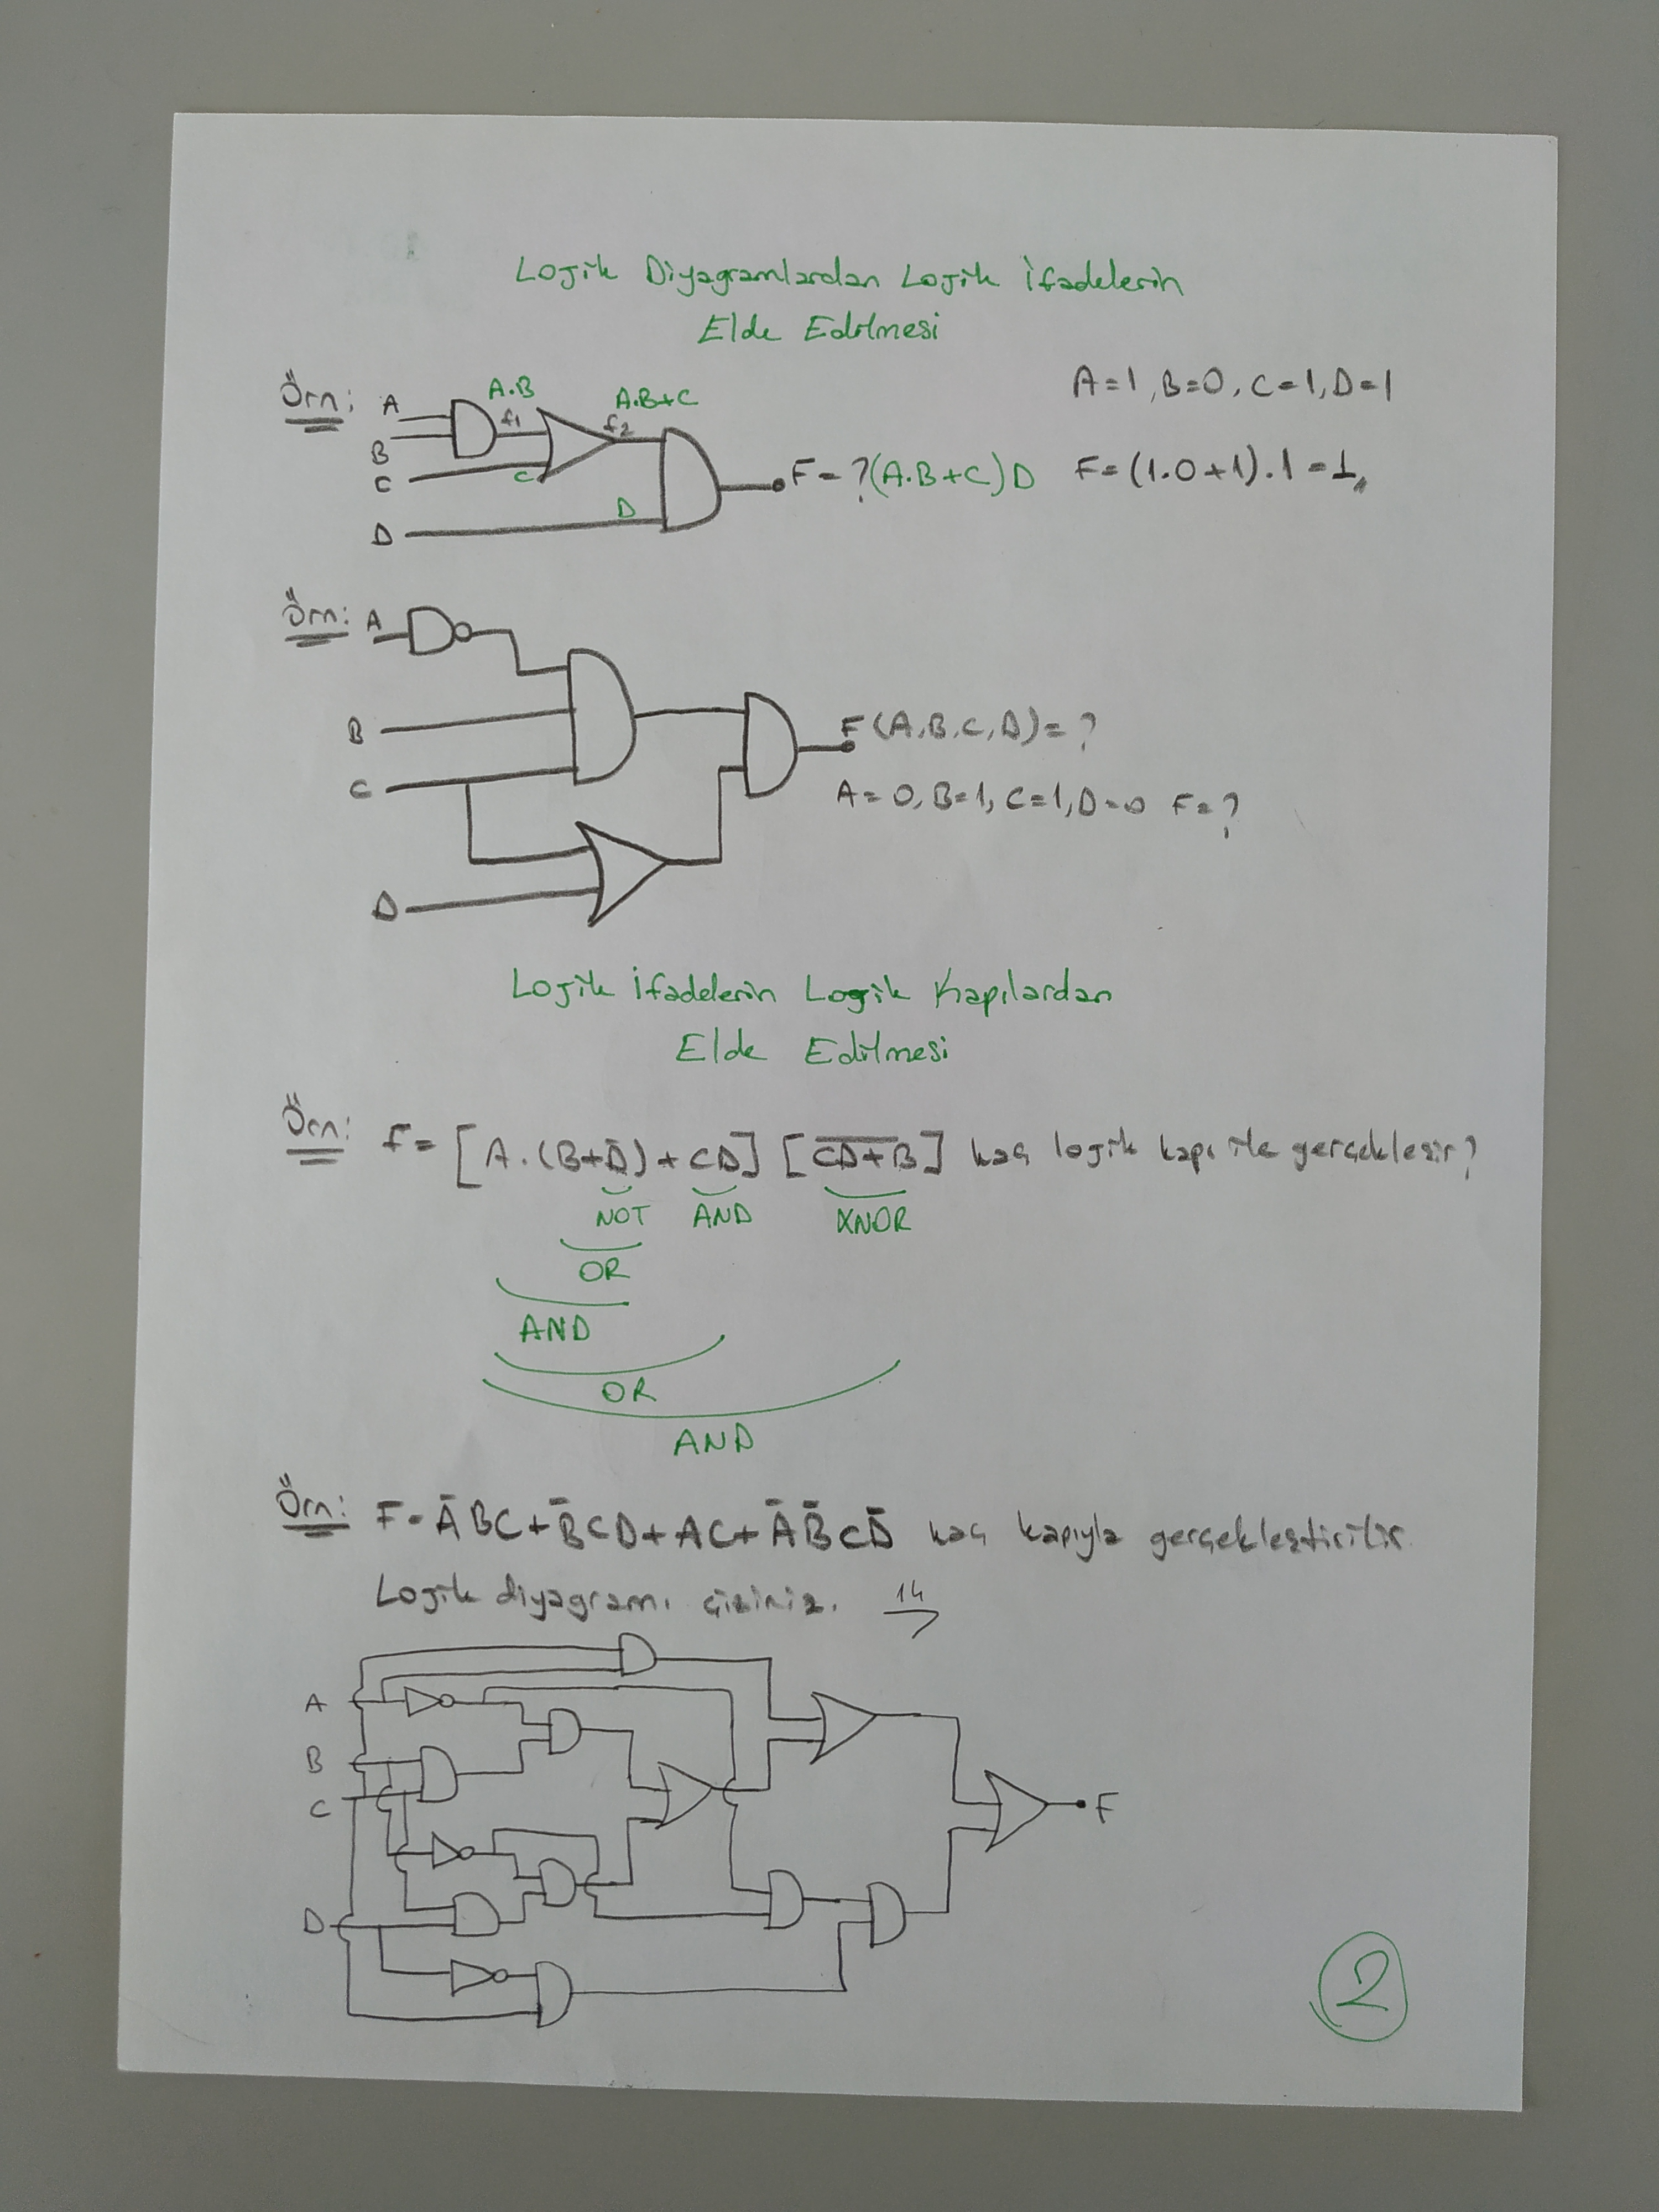 Lojik Diyagramlardan Lojik İfadelerin
Elde Edilmesi
Örn: A B C D A.B f1 C A.B+C f2 D F=?(A.B+C)D
A=1, B=0, C=1, D=1
F=(1.0+1).1=1
Örn: A B C D
F(A,B,C,D)=?
A=0, B=1, C=1, D=0 F=?
Lojik İfadelerin Lojik Kapılardan
Elde Edilmesi
Örn: F=[A.(B+D̄)+CD][C̅D̅+̅B̅] kaç lojik kapı ile gerçekleşir?
NOT AND XNOR
OR
AND
OR
AND
Örn: F=ĀBC+B̄CD+AC+ĀB̄CD̄ kaç kapıyla gerçekleştirilir.
Lojik diyagramı çiziniz. 14
A
B
C
D
F
2